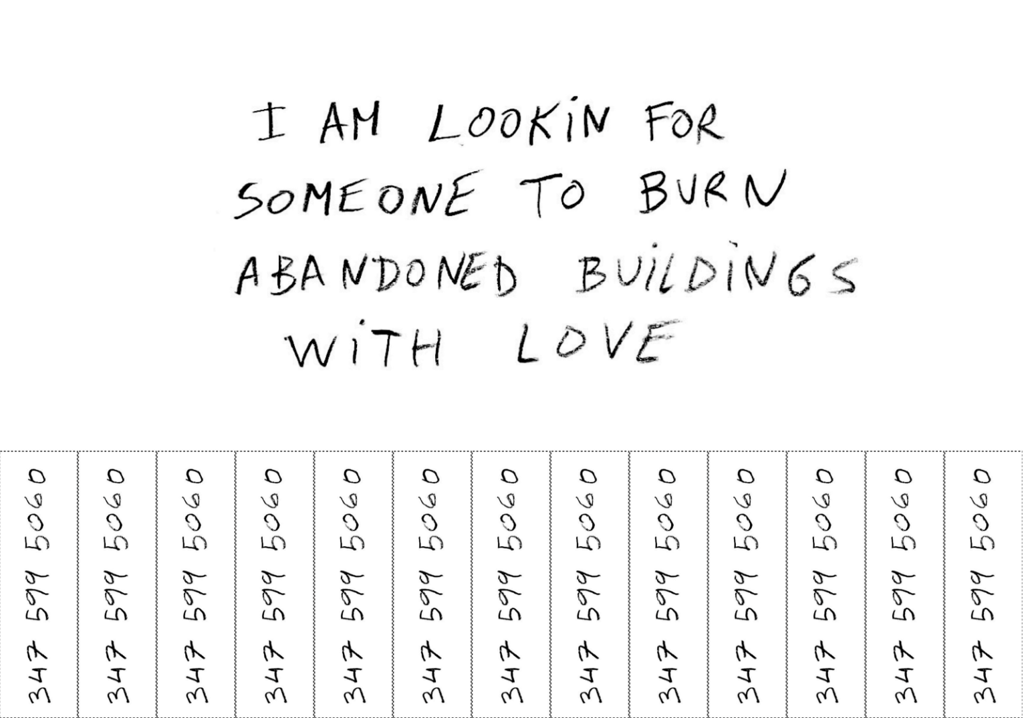 I AM LOOKiN FOR
SOMEONE TO BURN
ABANDONED BUiLDiNGS
WiTH LOVE
347 599 5060
347 599 5060
347 599 5060
347 599 5060
347 599 5060
347 599 5060
347 599 5060
347 599 5060
347 599 5060
347 599 5060
347 599 5060
347 599 5060
347 599 5060